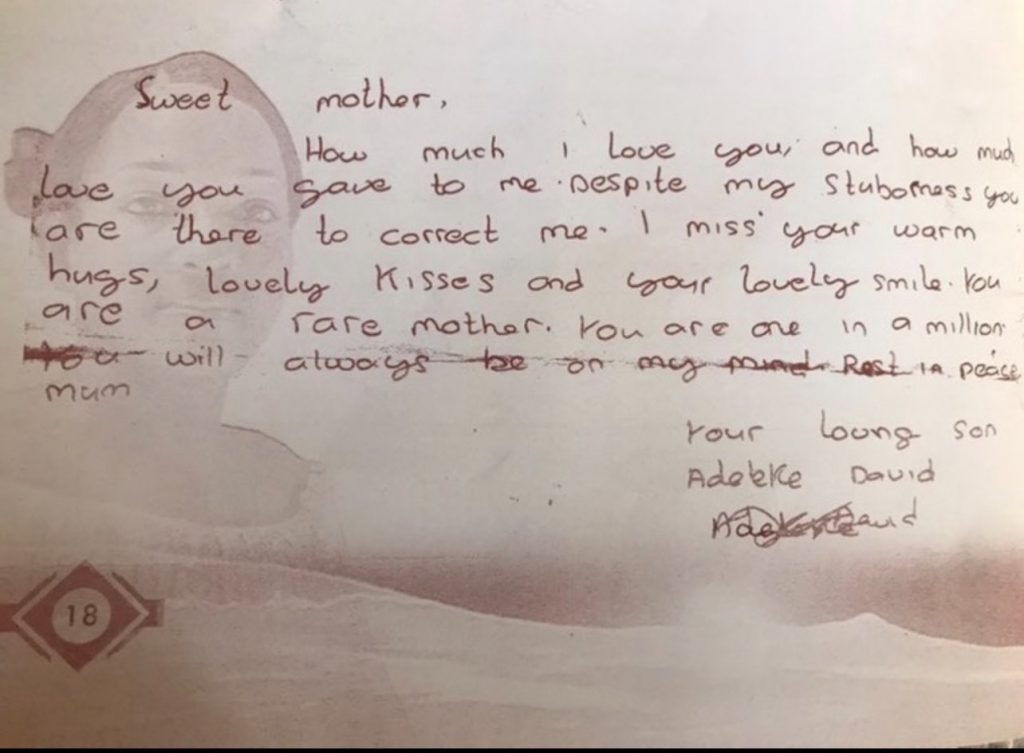 Sweet mother,
How much i love you, and how much
love you gave to me. Despite my Stuborness you
are there to correct me. I miss your warm
hugs, lovely Kisses and your lovely smile. You
are a rare mother. You are one in a million
You will always be on my mind. Rest in peace
mum
Your loving son
David
David
18